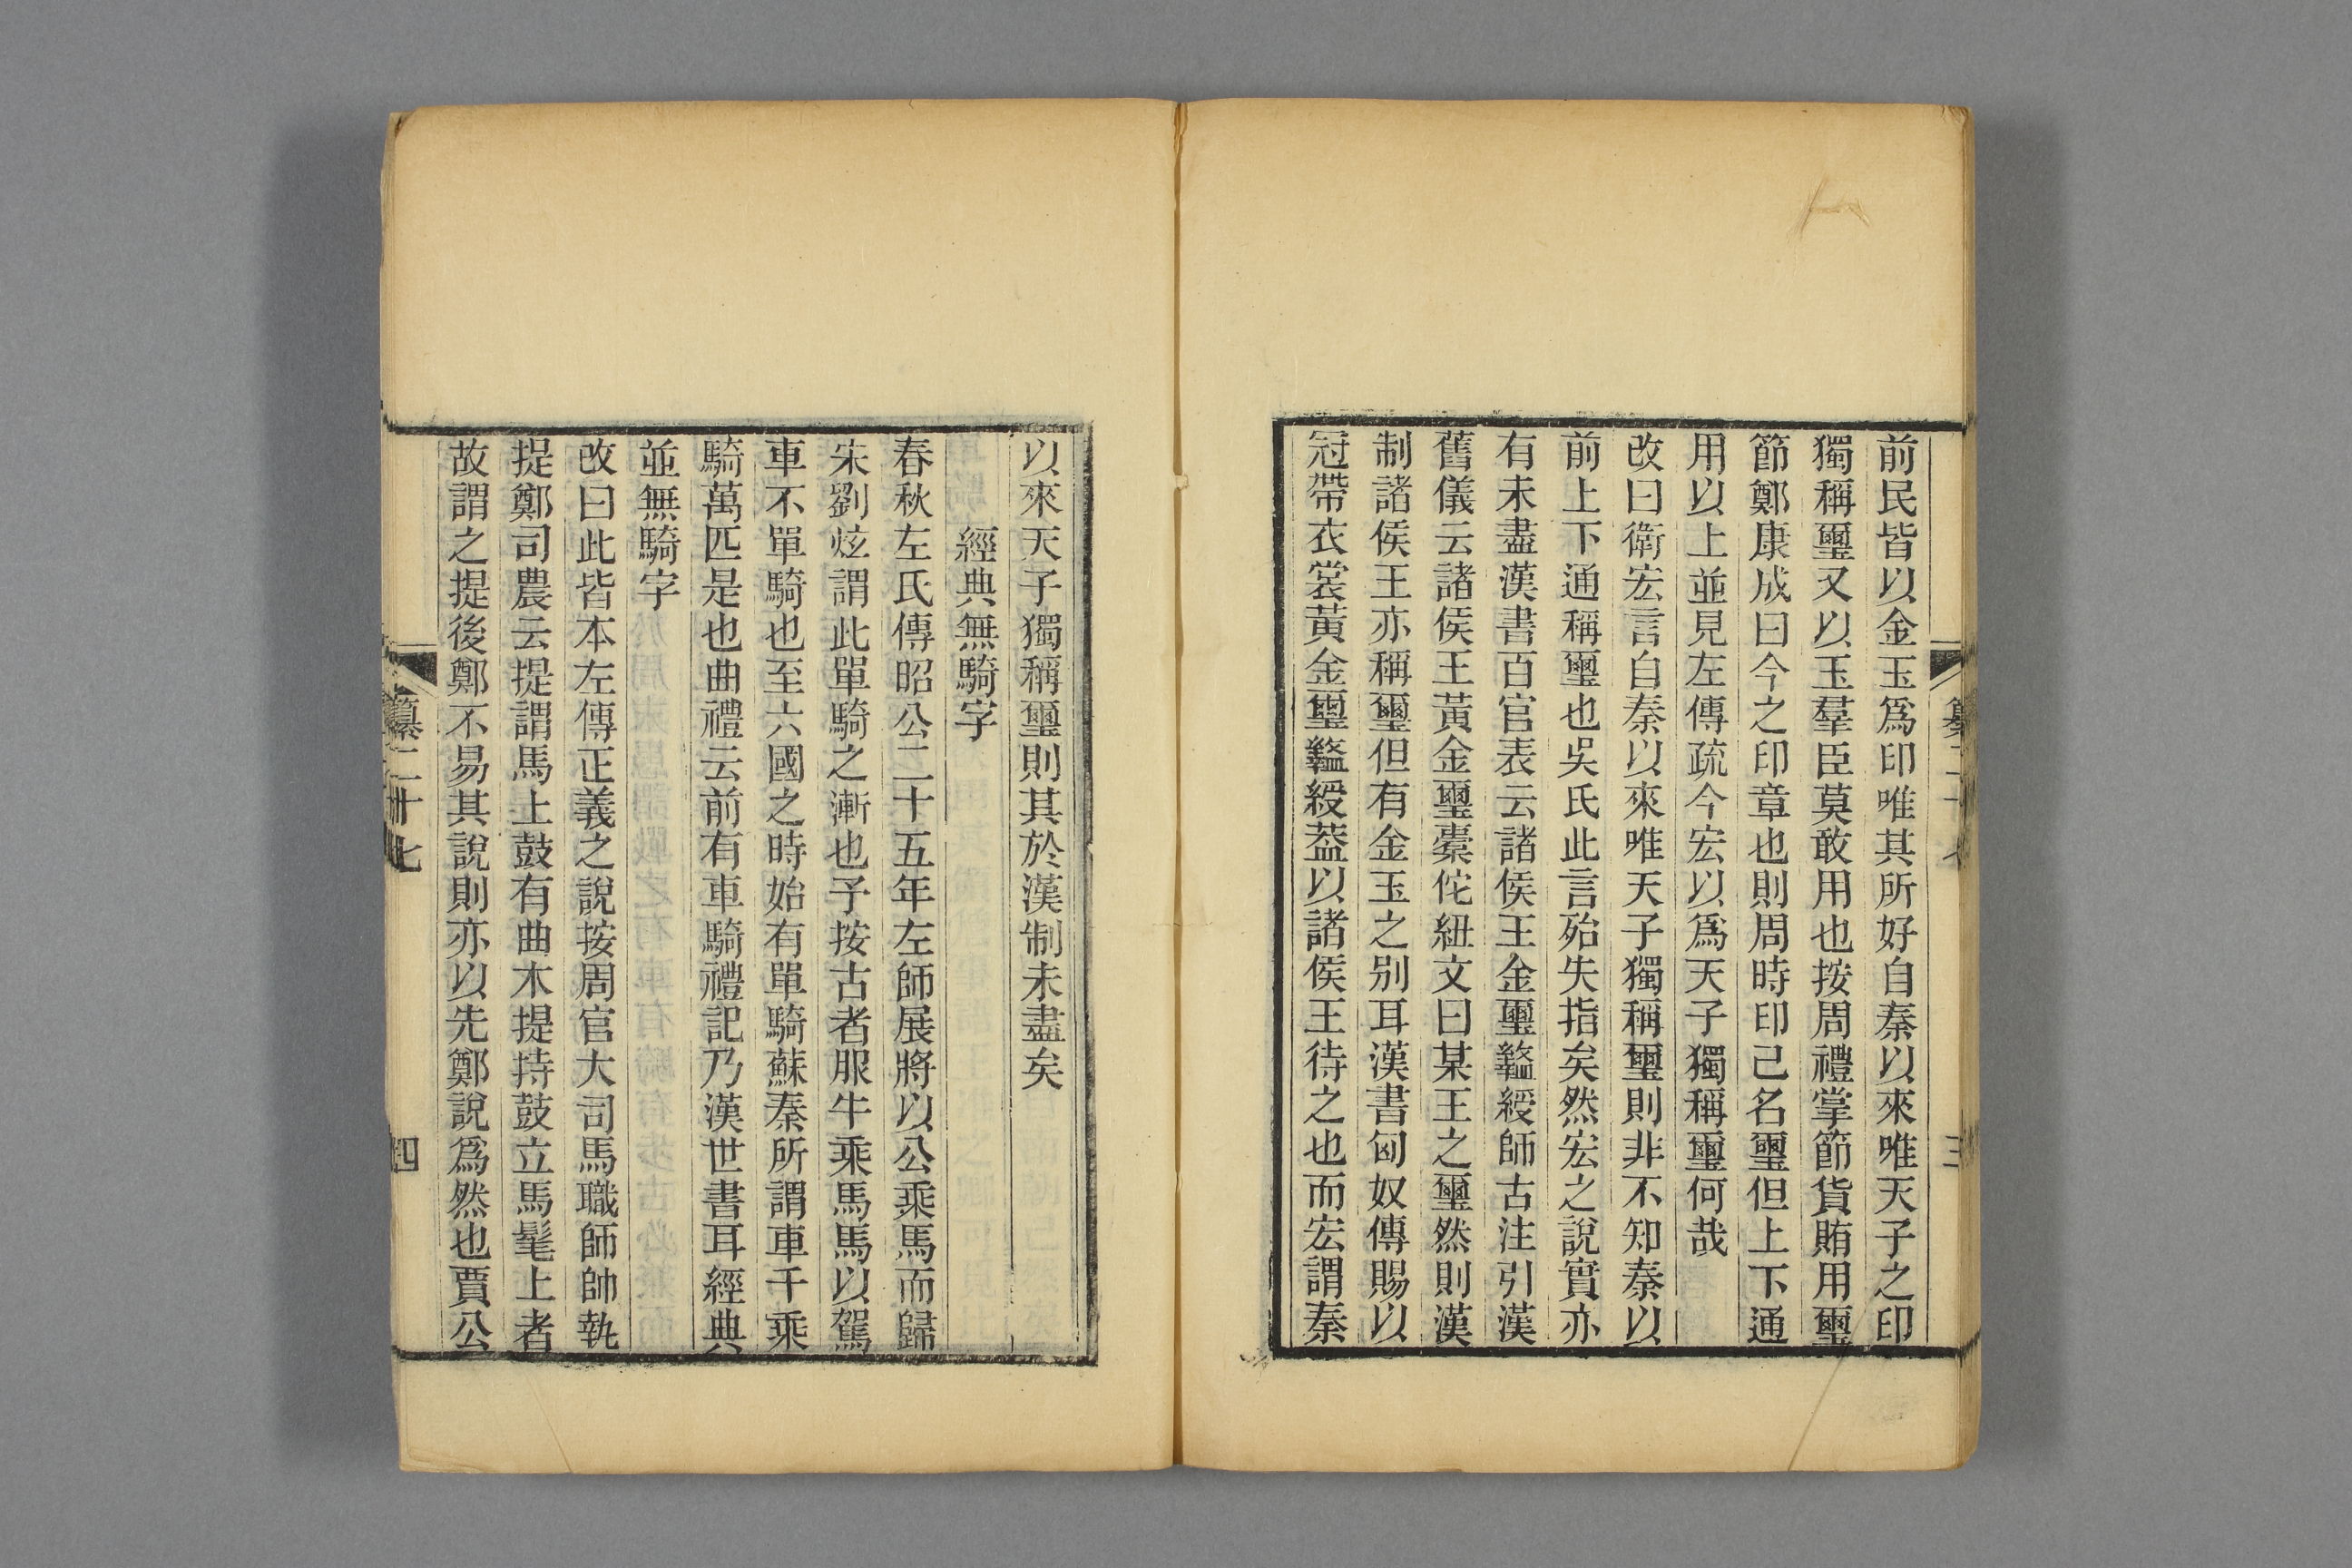 前民皆以金玉爲印唯其所好自秦以來唯天子之印
獨稱璽又以玉羣臣莫敢用也按周禮掌節貨賄用璽
節鄭康成曰今之印章也則周時印己名璽但上下通
用以上並見左傳疏今宏以爲天子獨稱璽何哉
改曰衛宏言自秦以來唯天子獨稱璽則非不知秦以
前上下通稱璽也吳氏此言殆失指矣然宏之說實亦
有未盡漢書百官表云諸侯王金璽盭綬師古注引漢
舊儀云諸侯王黃金璽橐佗紐文曰某王之璽然則漢
制諸侯王亦稱璽但有金玉之别耳漢書匈奴傳賜以
冠帶衣裳黃金璽盭綬葢以諸侯王待之也而宏謂秦
以來天子獨稱璽則其於漢制未盡矣
經典無騎字
春秋左氏傳昭公二十五年左師展將以公乘馬而歸
宋劉炫謂此單騎之漸也予按古者服牛乘馬馬以駕
車不單騎也至六國之時始有單騎蘇秦所謂車千乘
騎萬匹是也曲禮云前有車騎禮記乃漢世書耳經典
並無騎字
改曰此皆本左傳正義之說按周官大司馬職師帥執
提鄭司農云提謂馬上鼓有曲木提持鼓立馬髦上者
故謂之提後鄭不易其說則亦以先鄭說爲然也賈公
纂二十七
四